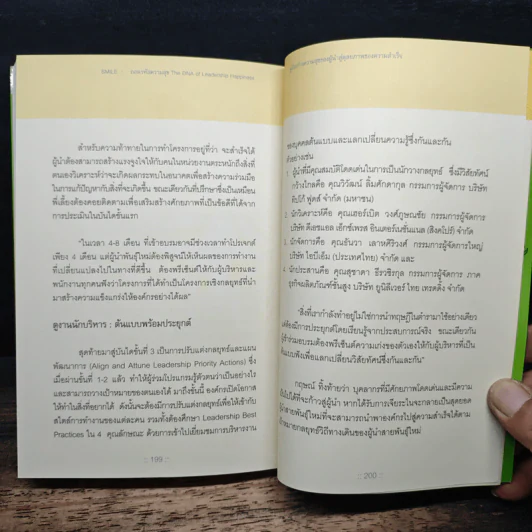 SMILE : บนนาทีแห่งความสุข The DNA of Leadership Happiness
สำหรับความท้าทายในการทำโครงการอยู่ที่ว่า จะสำเร็จได้
ผู้นำต้องสามารถสร้างแรงจูงใจให้กับคนในหน่วยงานตระหนักถึงสิ่งที่
ตนเองวิเคราะห์ว่าจะเกิดผลกระทบในอนาคตเพื่อสร้างความร่วมมือ
ในการแก้ปัญหากับสิ่งที่จะเกิดขึ้น ขณะเดียวกันที่ปรึกษาซึ่งเป็นเหมือน
พี่เลี้ยงต้องคอยติดตามเพื่อเสริมสร้างศักยภาพที่เป็นข้อดีที่ได้จาก
การประเมินในบันไดขั้นแรก
"ในเวลา 4-6 เดือน ที่เข้าอบรมอาจมีช่วงเวลาทำโปรเจกต์
เพียง 4 เดือน แต่ผู้นำพันธุ์ใหม่ต้องพิสูจน์ให้เห็นผลของการทำงาน
ที่เปลี่ยนแปลงไปในทางที่ดีขึ้น ต้องพรีเซ็นต์ให้กับผู้บริหารและ
พนักงานทุกคนฟังว่าโครงการที่ได้ทำเป็นโครงการเชิงกลยุทธ์ที่นำ
มาสร้างความแข็งแกร่งให้องค์กรอย่างได้ผล"
ดูงานนักบริหาร : ต้นแบบพร้อมประยุกต์
สุดท้ายมาสู่บันไดขั้นที่ 3 เป็นการปรับแต่งกลยุทธ์และแผน
พัฒนาการ (Align and Attune Leadership Priority Actions) ซึ่ง
เมื่อผ่านขั้นที่ 1-2 แล้ว ทำให้ผู้ร่วมโปรแกรมรู้ตัวตนว่าเป็นอย่างไร
และสามารถวางเป้าหมายของตนเองได้ มาถึงขั้นนี้ องค์กรเปิดโอกาส
ให้ทำในสิ่งที่อยากได้ ดังนั้นจะต้องมีการปรับแต่งกลยุทธ์เพื่อให้เข้ากับ
สไตล์การทำงานของแต่ละคน รวมทั้งต้องศึกษา Leadership Best
Practices ใน 4 คุณลักษณะ ด้วยการเข้าไปเยี่ยมชมการบริหารงาน
:: 199 ::
ของบุคคลต้นแบบและแลกเปลี่ยนความรู้ซึ่งกันและกัน
ตัวอย่างเช่น
1. ผู้นำที่มีคุณสมบัติโดดเด่นในการเป็นนักวางกลยุทธ์ ซึ่งมีวิสัยทัศน์
กว้างไกลคือ คุณวิวัฒน์ ลิ้มศักดากุล กรรมการผู้จัดการ บริษัท
ฟูดส์ จำกัด (มหาชน)
2. นักวิเคราะห์คือ คุณเฮอร์เบิต วงศ์ภูษณชัย กรรมการผู้จัดการ
บริษัท ดีเอชแอล เอ็กซ์เพรส อินเตอร์เนชั่นแนล (สิงคโปร์) จำกัด
3. นักจัดการคือ คุณธันวา เลาหศิริวงศ์ กรรมการผู้จัดการใหญ่
บริษัท ไอบีเอ็ม (ประเทศไทย) จำกัด และ
4. นักประสานคือ คุณสุชาดา ธีรวชิรกุล กรรมการผู้จัดการ ภาค
ธุรกิจผลิตภัณฑ์ชั้นสูง บริษัท ยูนิลีเวอร์ ไทย เทรดดิ้ง จำกัด
"สิ่งที่เรากำลังทำอยู่ไม่ใช่การนำทฤษฎีในตำรามาใช้อย่างเดียว
แต่ต้องมีการประยุกต์โดยเรียนรู้จากประสบการณ์จริง ขณะเดียวกัน
ผู้เข้าร่วมอบรมต้องพรีเซ็นต์ความเก่งของตัวเองให้กับผู้บริหารที่เป็น
ต้นแบบฟังเพื่อแลกเปลี่ยนวิสัยทัศน์ซึ่งกันและกัน"
กฤษณ์ ทิ้งท้ายว่า บุคลากรที่มีศักยภาพโดดเด่นและมีความ
ที่จะก้าวสู่ผู้นำ หากได้รับการเจียระไนจะกลายเป็นสุดยอด
ผู้นำสายพันธุ์ใหม่ที่จะสามารถนำพาองค์กรไปสู่ความสำเร็จได้ตาม
เป้าหมายกลยุทธ์วิถีทางเดินของผู้นำสายพันธุ์ใหม่
:: 200 ::